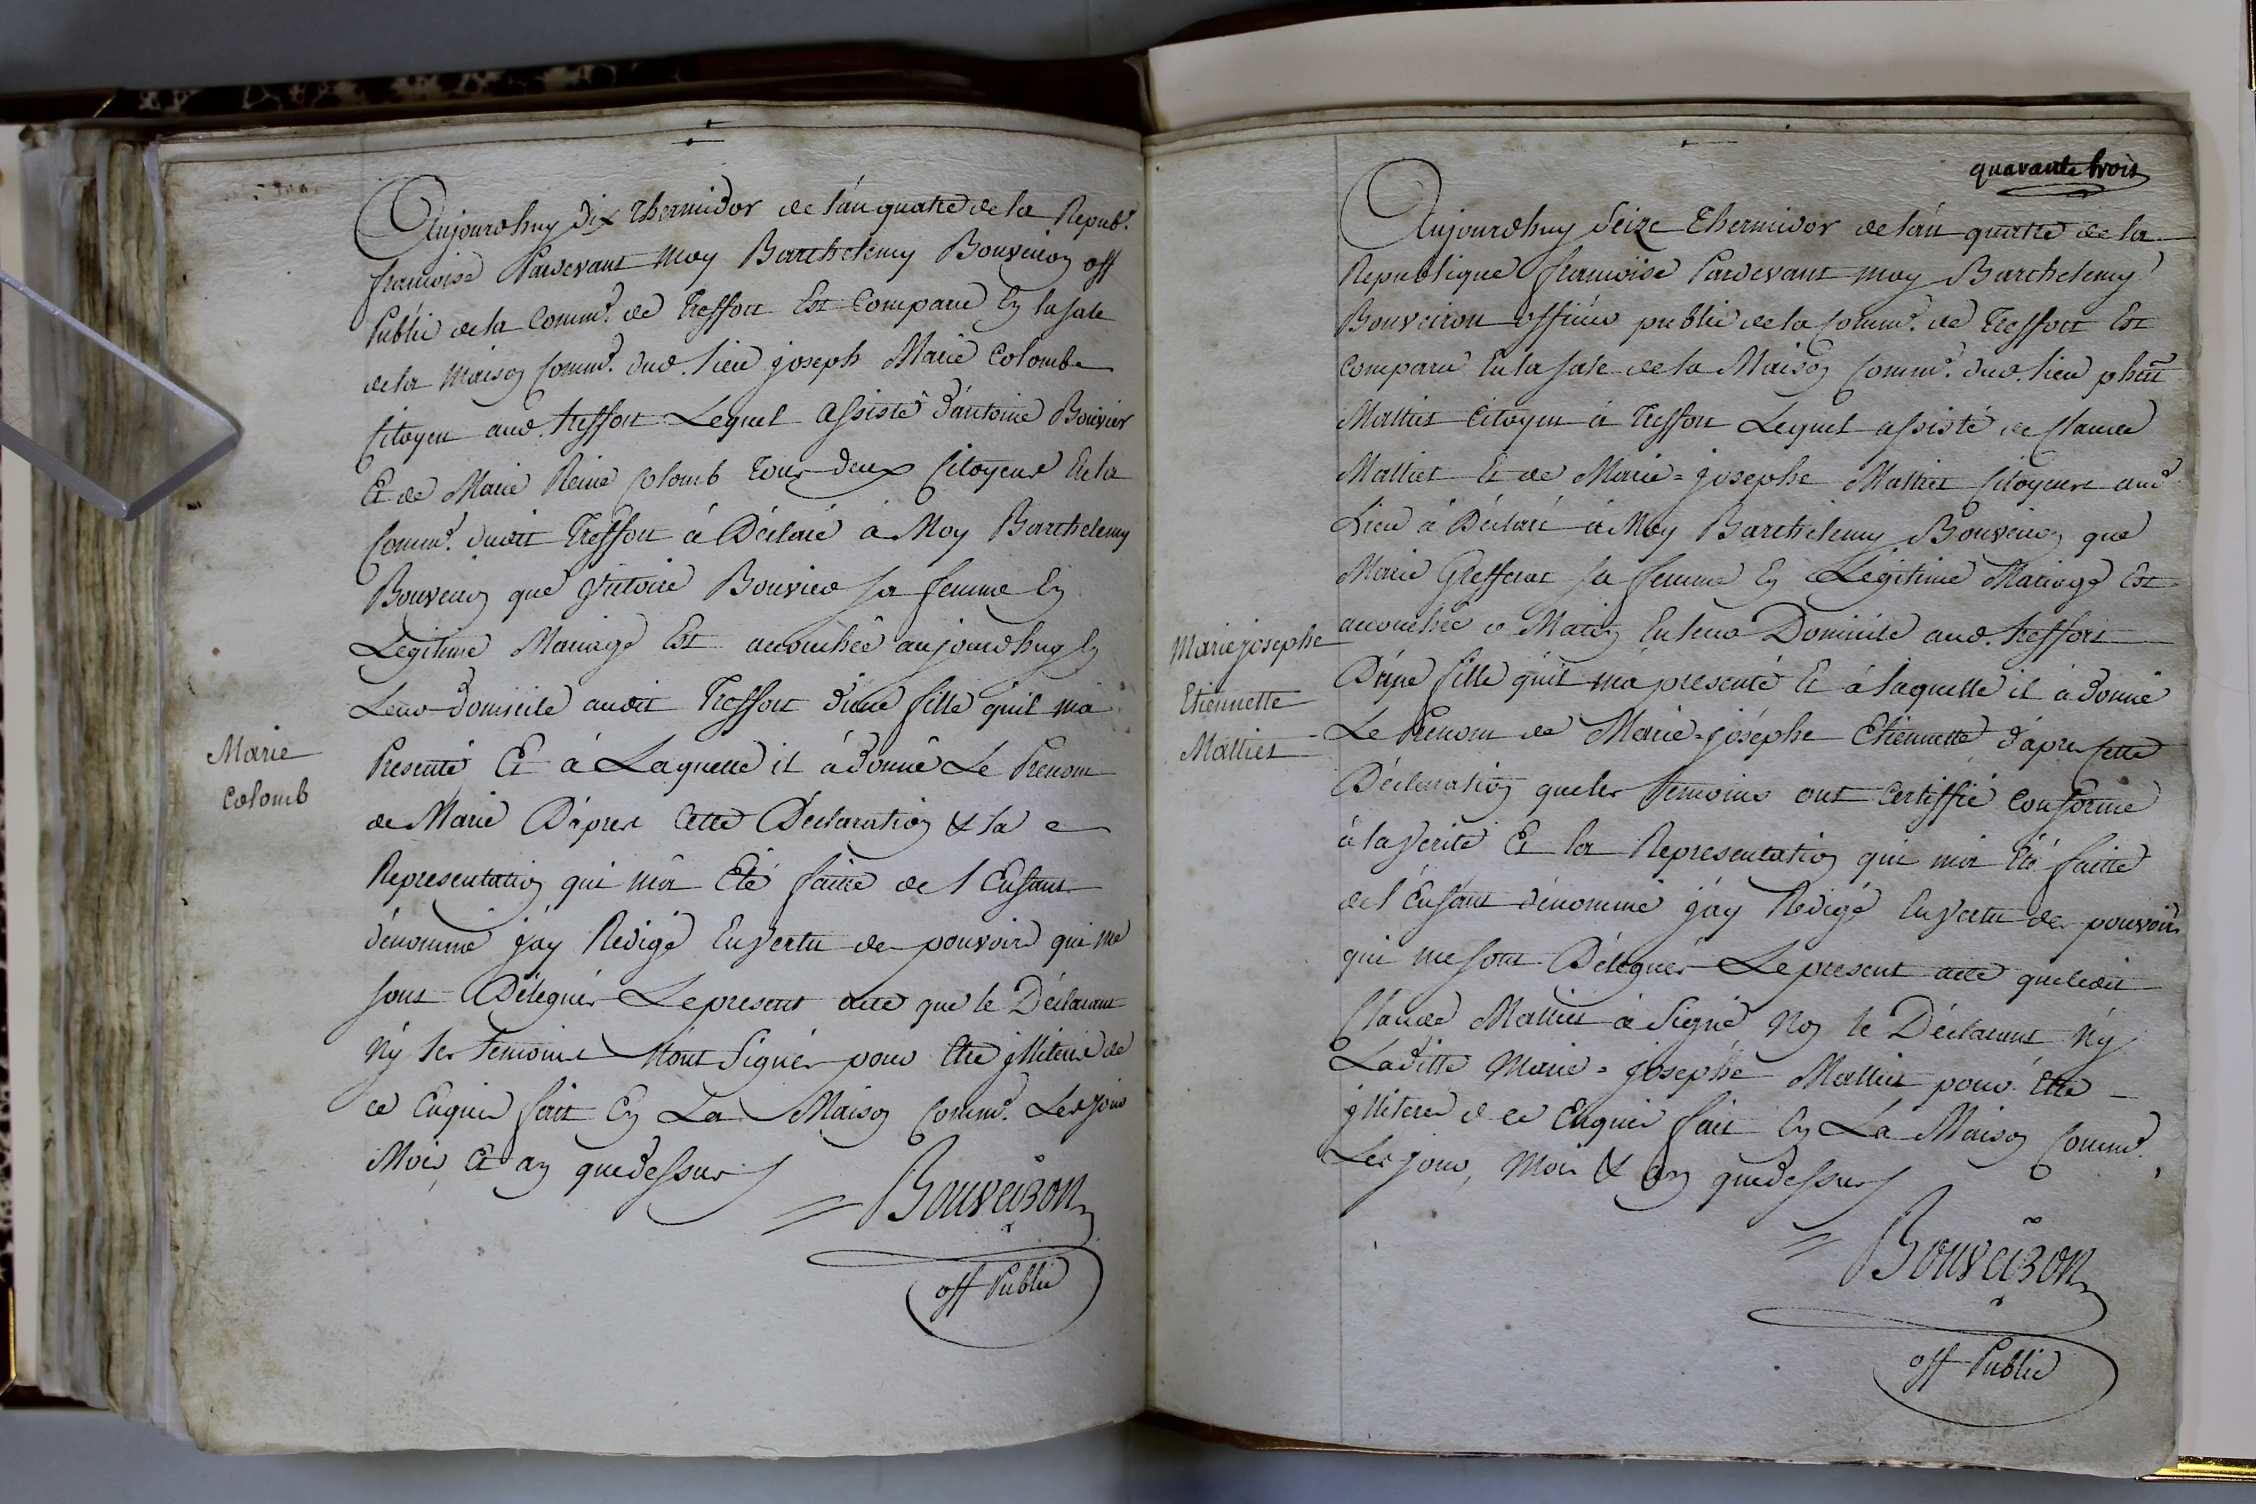 Aujourdhuy dix Thermidor de l'an quatre de la Repub.e
francoise Pardevant moy Barthelemy Bouveiron off
Public de la Comm.e de Treffort Est Comparu En la sale
de la Maison Comm.e dud. lieu joseph Marie Colombe
Citoyen aud. treffort Lequel assisté d'antoine Bouvier
Et de Marie Reine Colomb tous deux Citoyens En la
Comm.e dudit Treffort à Déclaré à Moy Barthelemy
Bouveiron que Victoire Bouvier sa femme En
Legitime Mariage Est accouchée aujourdhuy En
Leur domicile audit Treffort d'une fille qu'il m'a
Presenté Et à Laquelle il à donné Le Prenom
de Marie D'apres Cette Déclaration & la
Representation qui m'a Eté faitte de l'Enfant
dénommé j'ay Redigé En Vertu des pouvoirs qui me
sont Délégués Le present acte que le Déclarant
Ny les temoins N'ont Signés pour Etre jlliterés de
ce Enquis fait En La Maison Comm.e Les jour
Mois, Et an que dessus
Bouveiron
off Public
Marie
Colomb
quarante trois
Aujourdhuy Seize Thermidor de l'an quatre de la
Republique francoise Pardevant moy Barthelemy
Bouveiron officier public de la Comm.e de Treffort Est
Comparu En la sale de la Maison Comm.e dud. lieu
Malliet Citoyen à Treffort Lequel assisté de Claude
Malliet Et de Marie=josephe Malliet Citoyens aud.
Lieu à Déclaré à Moy Barthelemy Bouveiron que
Marie sa femme En Légitime Mariage Est
accouchée ce Matin En leur Domicile aud. treffort
D'une fille qu'il m'a presenté Et à laquelle il à donné
Le Prenom de Marie=joséphe Etiennette d'apres Cette
Déclaration que les temoins ont Certiffié Conforme
à la Verité Et la Representation qui m'a Eté faitte
de l'Enfant dénommé j'ay Redigé En Vertu des pouvoirs
qui me sont Délégués Le present acte que ledit
Claude Malliet à Signé Non le Déclarant Ny
Laditte Marie=josephe Malliet pour Etre
jlliterés d ce Enquis fait En La Maison Comm.e
Les jour, Mois & an que dessus
Bouveiron
off Public
Marie josephe
Etiennette
Malliet